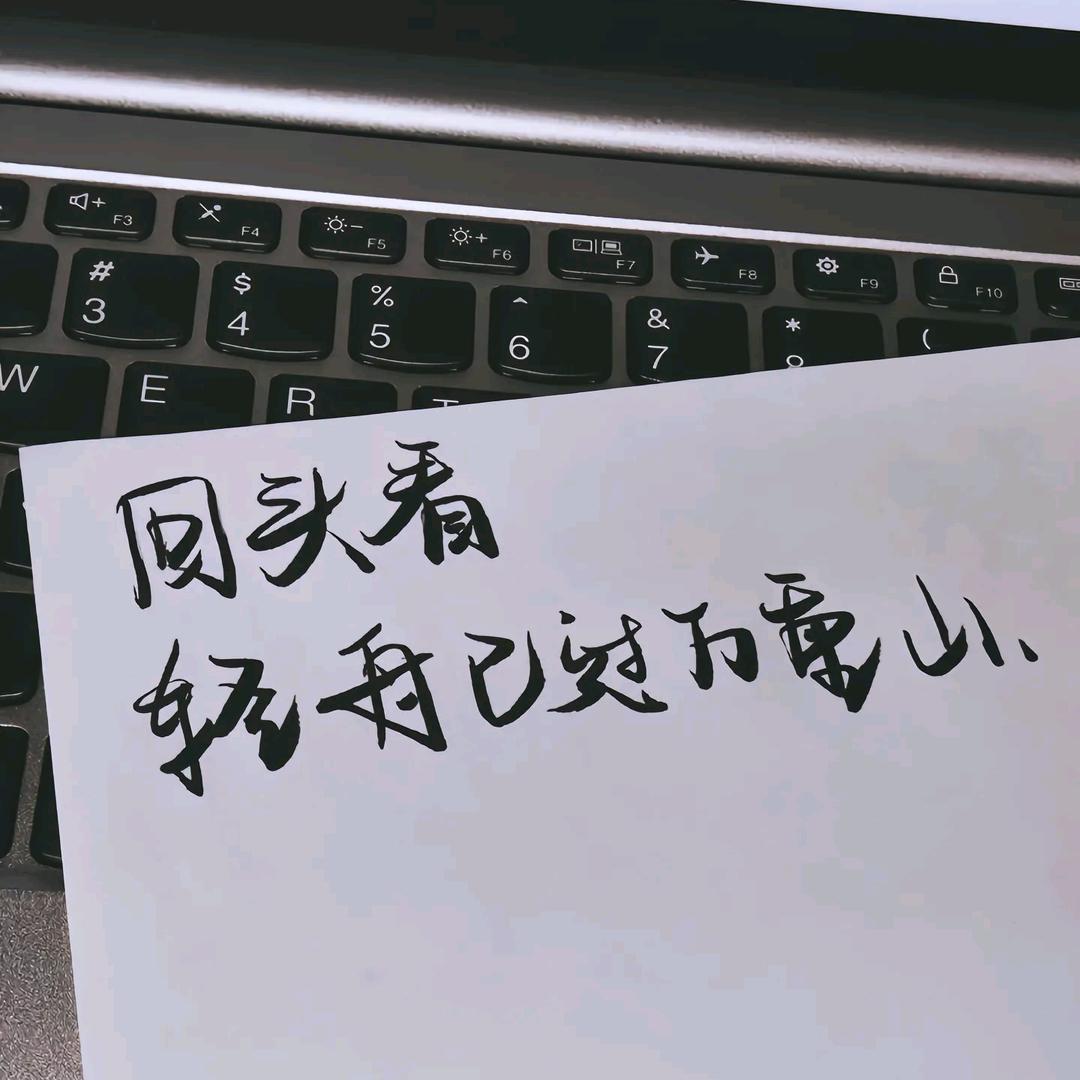 F3 F4 F5 F6 F7 F8 F9 F10
# $ % ^ & * (
3 4 5 6 7
W E R
回头看
轻舟已过万重山、